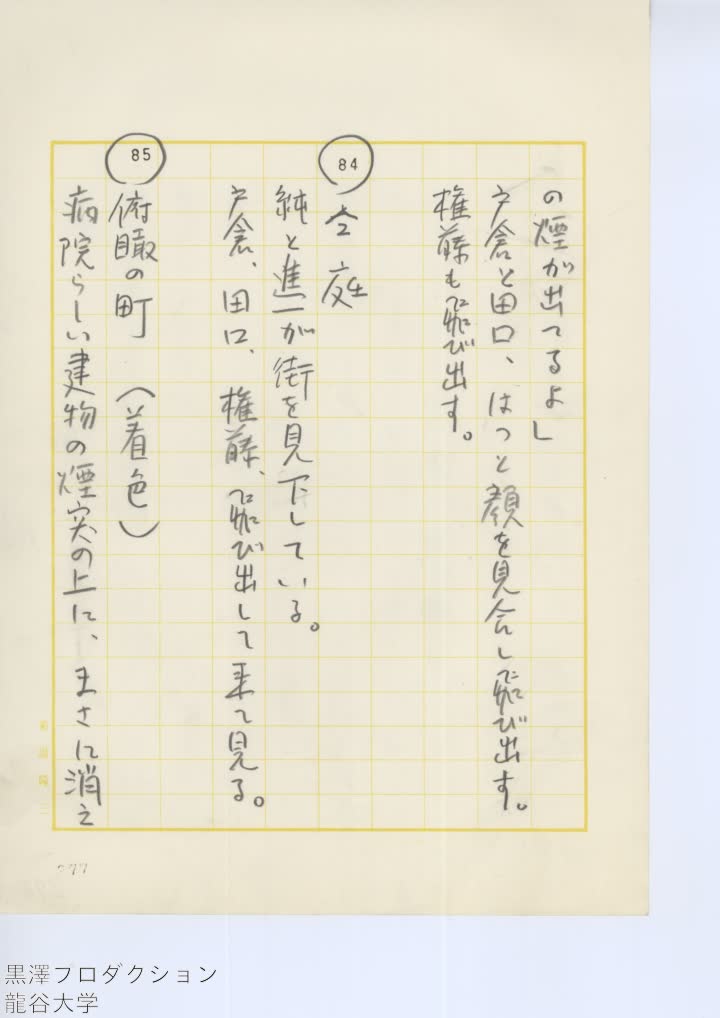 の煙が出てるよ」
戸倉と田口、はっと顔を見合し飛び出す。
権藤も飛び出す。
84
前庭
純と進一が街を見下している。
戸倉、田口、権藤、飛び出して来て見る。
85
俯瞰の町（着色）
病院らしい建物の煙突の上に、まさに消え
277
黒澤プロダクション
龍谷大学